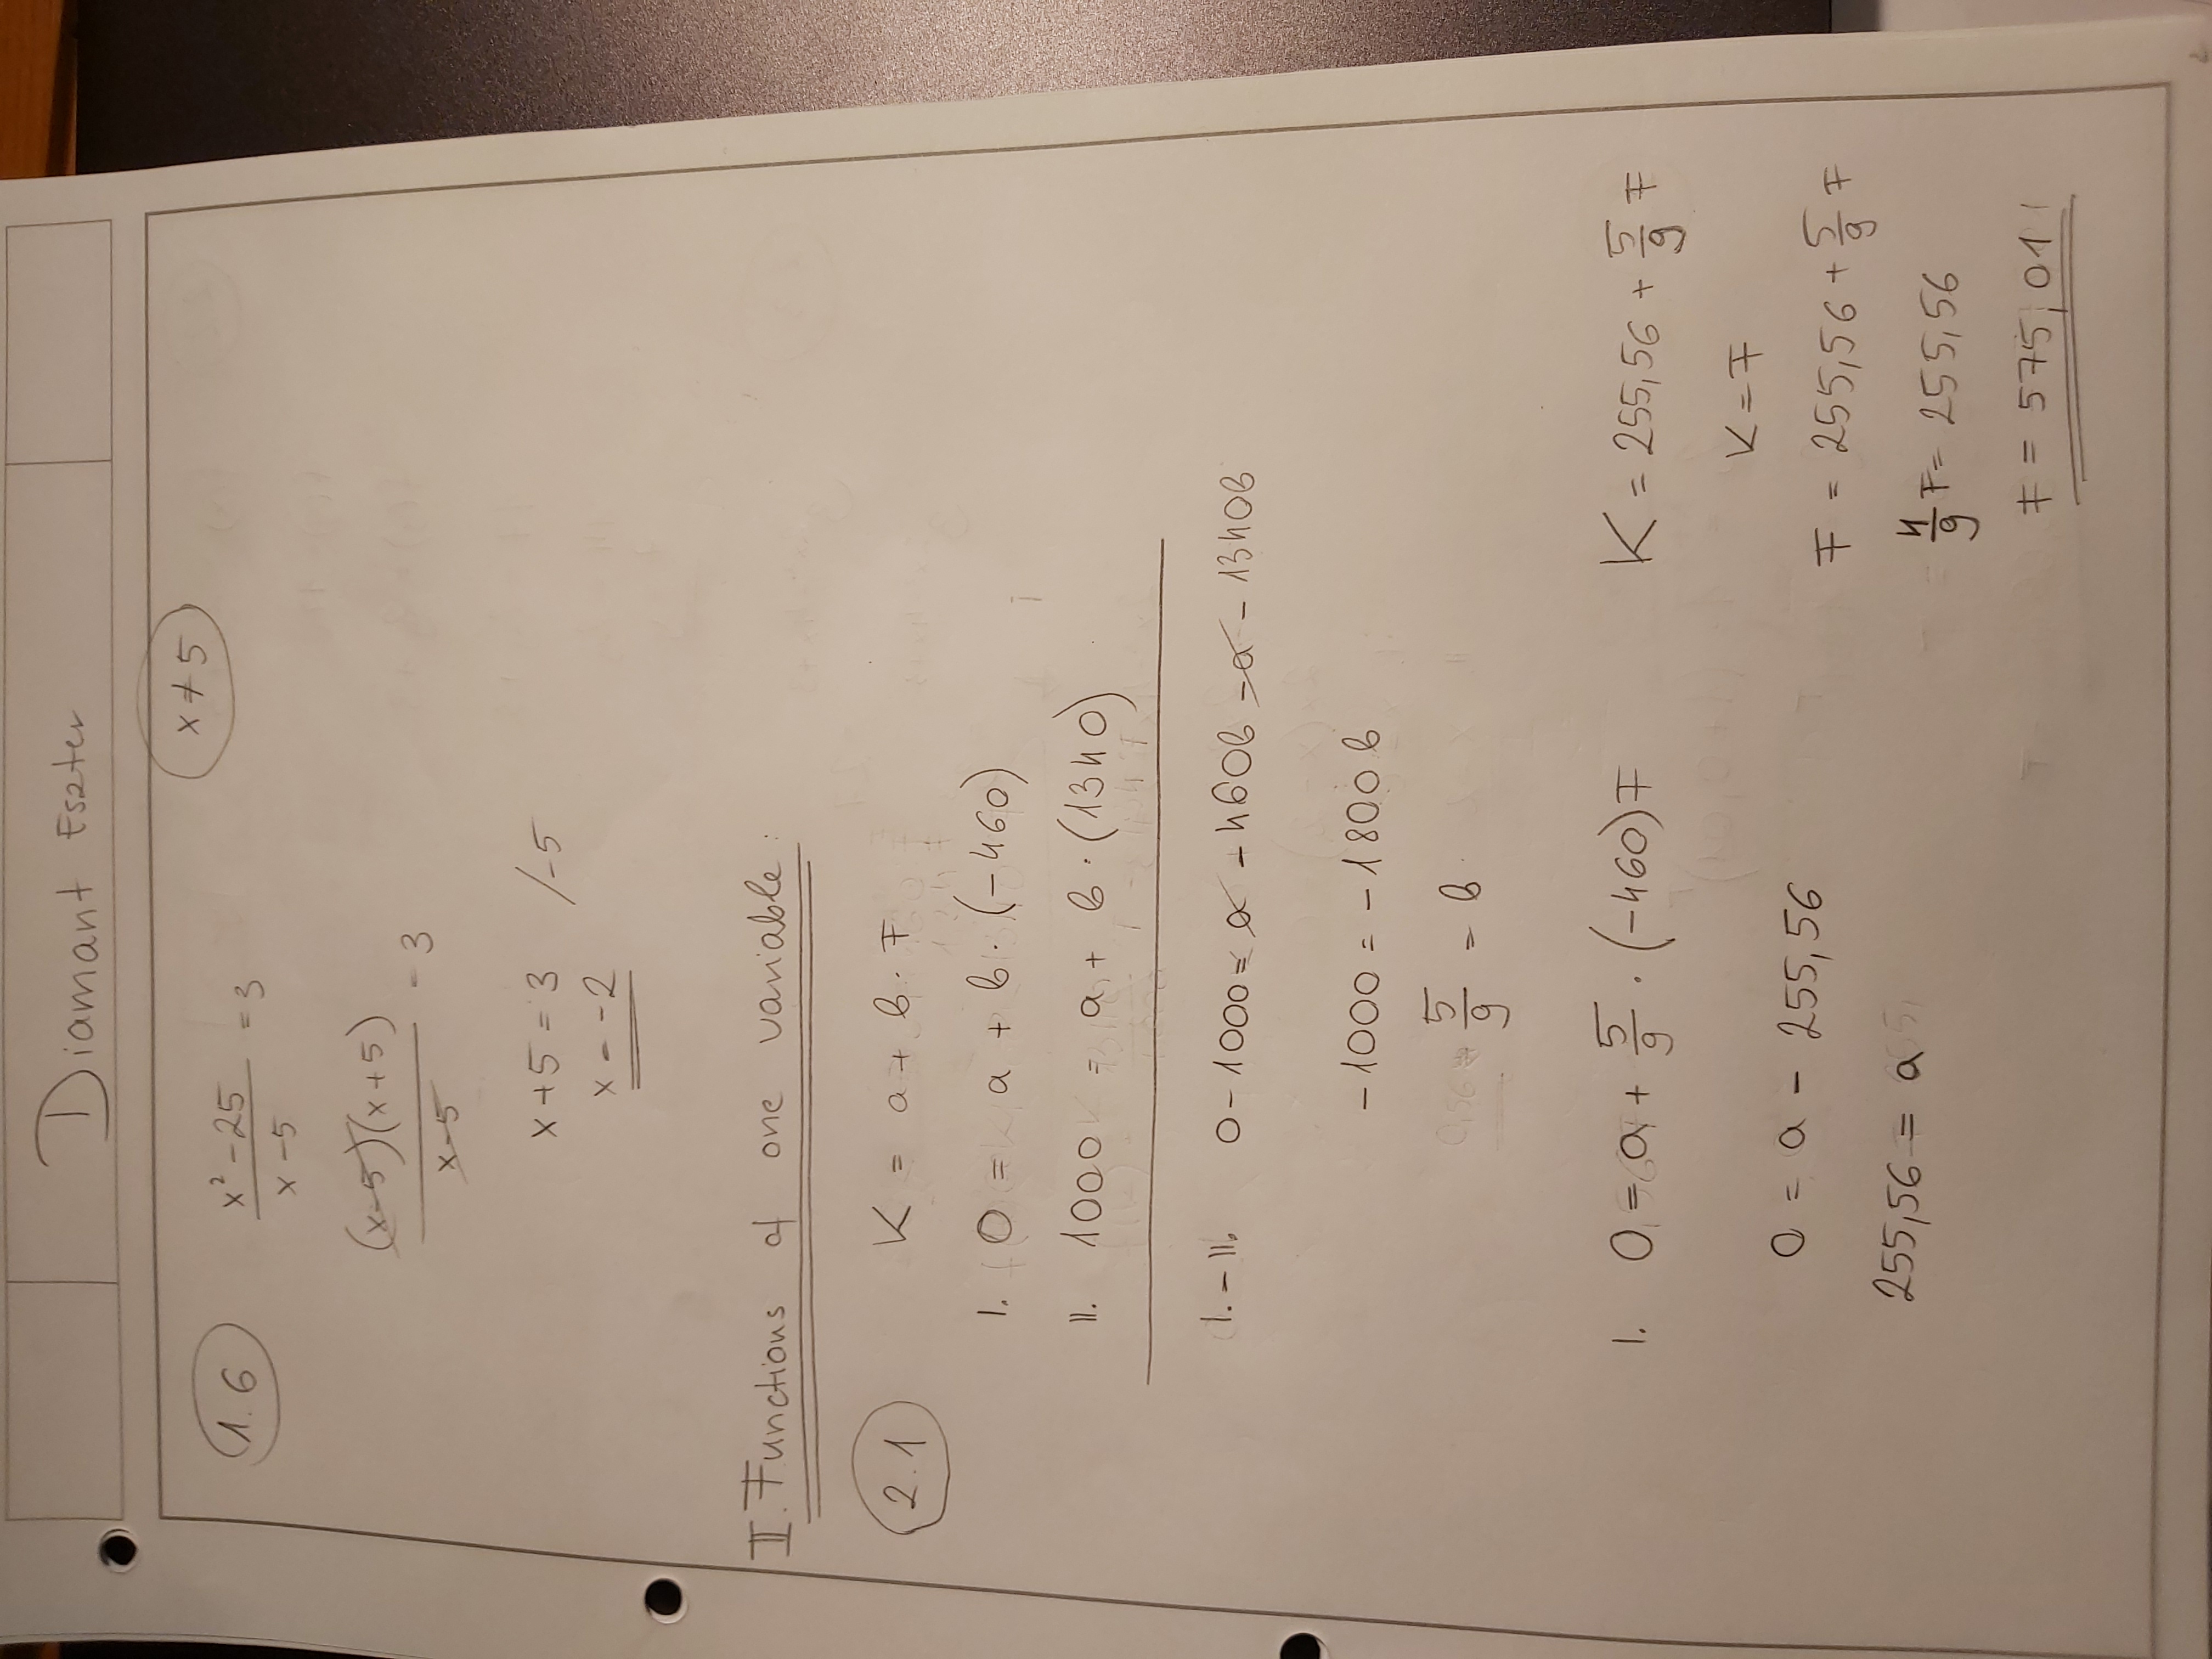 Diamant Eszter
x ≠ 5
1.6
x² - 25
x - 5
= 3
(x-5)(x+5)
x-5
= 3
x + 5 = 3 /-5
x = -2
II. Functions of one variable:
2.1
K = a + b · F
I. 0 = a + b · (-460)
II. 1000 = a + b · (1340)
I. - II. 0 - 1000 = a - 460b - a - 1340b
-1000 = -1800 b
5/9 = b
I. 0 = a + 5/9 · (-460) F
0 = a - 255,56
255,56 = a
K = 255,56 + 5/9 F
K = F
F = 255,56 + 5/9 F
4/9 F = 255,56
F = 575,01